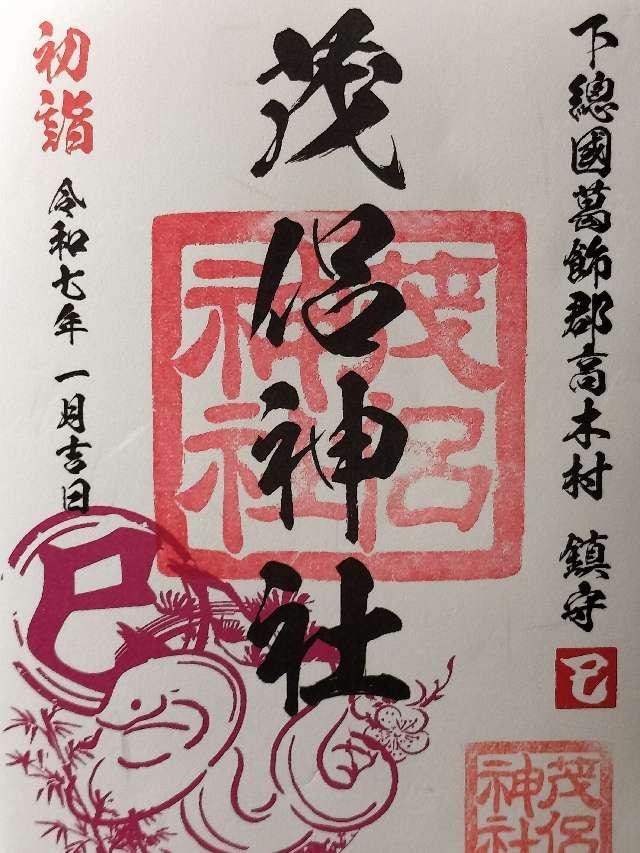 下總國葛飾郡高木村 鎮守
巳
茂侶神社
茂侶
神社
初詣
令和七年 一月吉日
巳
茂侶
神社